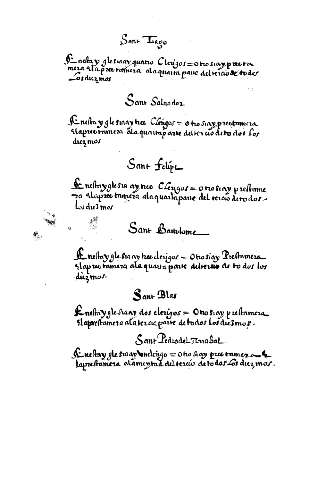 Sant Tiago
Enesta ygłesia ay quatro Clerigos = otrosi ay presta
mera e la prestamera a la quarta parte del tercio de todos
los diezmos
Sant Saluador
Enesta yglesia ay tres Clerigos = otrosi ay prestamera
e la prestamera a la quarta parte del tercio de todos los
diezmos
Sant Felipe
Enesta yglesia ay tres Clerigos = otrosi ay prestame
ra e la prestamera a la quarta parte del tercio de todos
los diezmos
Sant Bartolome
Enesta yglesia ay tres clerigos = otrosi ay Prestamera
e la prestamera a la quarta parte del tercio de todos los
diezmos
Sant Blas
Enesta yglesia ay dos clerigos = otrosi ay prestamera
e la prestamera a la tercia parte de todos los diezmos.
Sant Pedro del Arrabal
Enesta yglesia ay un clerigo = otrosi ay prestamera e
la prestamera a la meytad del tercio de todos los diezmos.